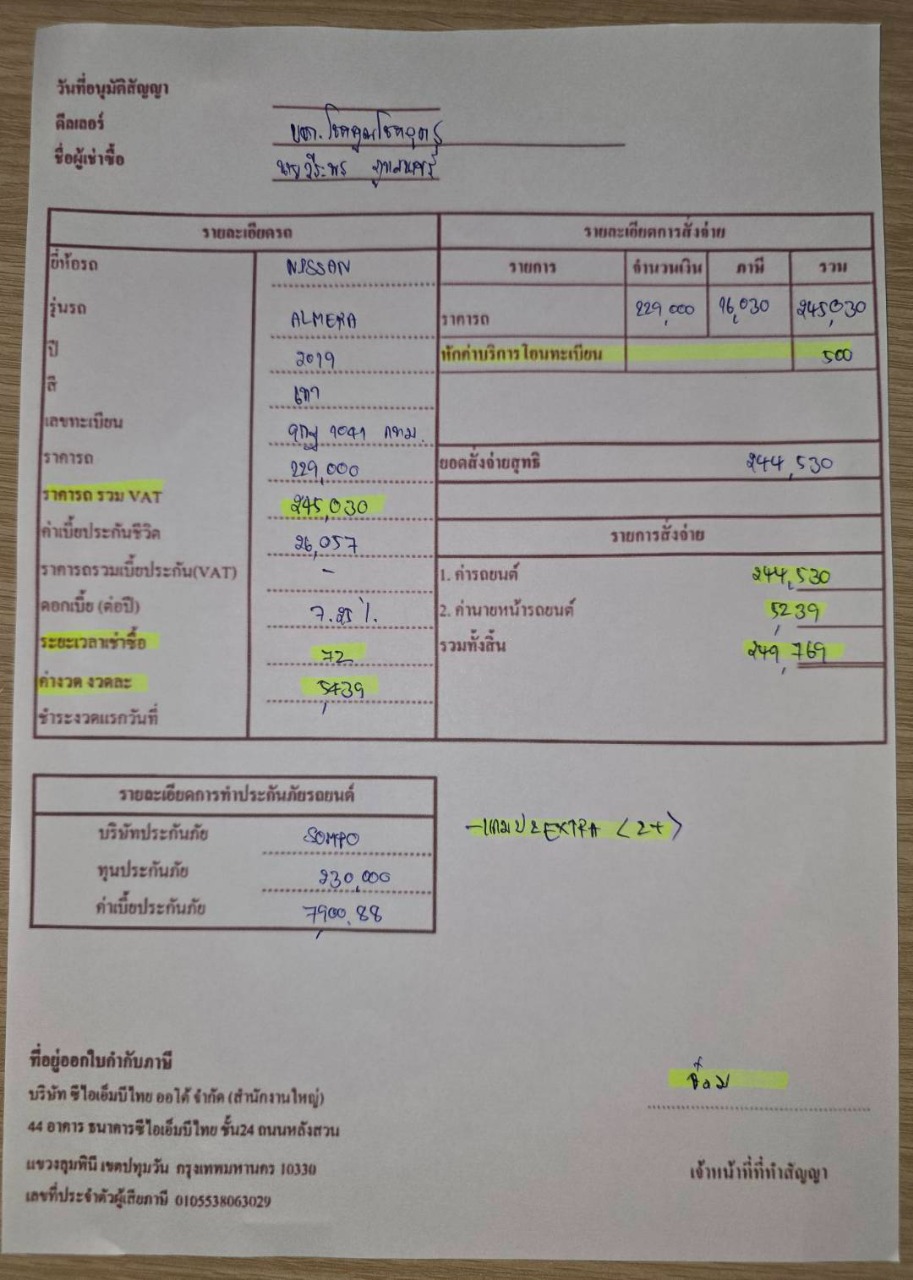 วันที่อนุมัติสัญญา
ดีลเลอร์ บจก.
ชื่อผู้เช่าซื้อ นายวีระพร
รายละเอียดรถ
ยี่ห้อรถ NISSAN
รุ่นรถ ALMERA
ปี 2019
สี เทา
เลขทะเบียน 1041 กทม.
ราคารถ 229,000
ราคารถ รวม VAT 245,030
ค่าเบี้ยประกันชีวิต 26,057
ราคารถรวมเบี้ยประกัน(VAT) -
ดอกเบี้ย (ต่อปี) 7.25 %.
ระยะเวลาเช่าซื้อ 72
ค่างวด งวดละ 5,439
ชำระงวดแรกวันที่
รายละเอียดการสั่งจ่าย
รายการ จำนวนเงิน ภาษี รวม
ราคารถ 229,000 16,030 245,030
หักค่าบริการโอนทะเบียน 500
ยอดสั่งจ่ายสุทธิ 244,530
รายการสั่งจ่าย
1. ค่ารถยนต์ 244,530
2. ค่านายหน้ารถยนต์ 5,239
รวมทั้งสิ้น 249,769
รายละเอียดการทำประกันภัยรถยนต์
บริษัทประกันภัย SOMPO
ทุนประกันภัย 230,000
ค่าเบี้ยประกันภัย 7,900.88
-แถมป 2 EXTRA (2+)
ที่อยู่ออกใบกำกับภาษี
บริษัท ซีไอเอ็มบีไทย ออโต้ จำกัด (สำนักงานใหญ่)
44 อาคาร ธนาคารซีไอเอ็มบีไทย ชั้น24 ถนนหลังสวน
แขวงลุมพินี เขตปทุมวัน กรุงเทพมหานคร 10330
เลขที่ประจำตัวผู้เสียภาษี 0105538063029
เจ้าหน้าที่ที่ทำสัญญา